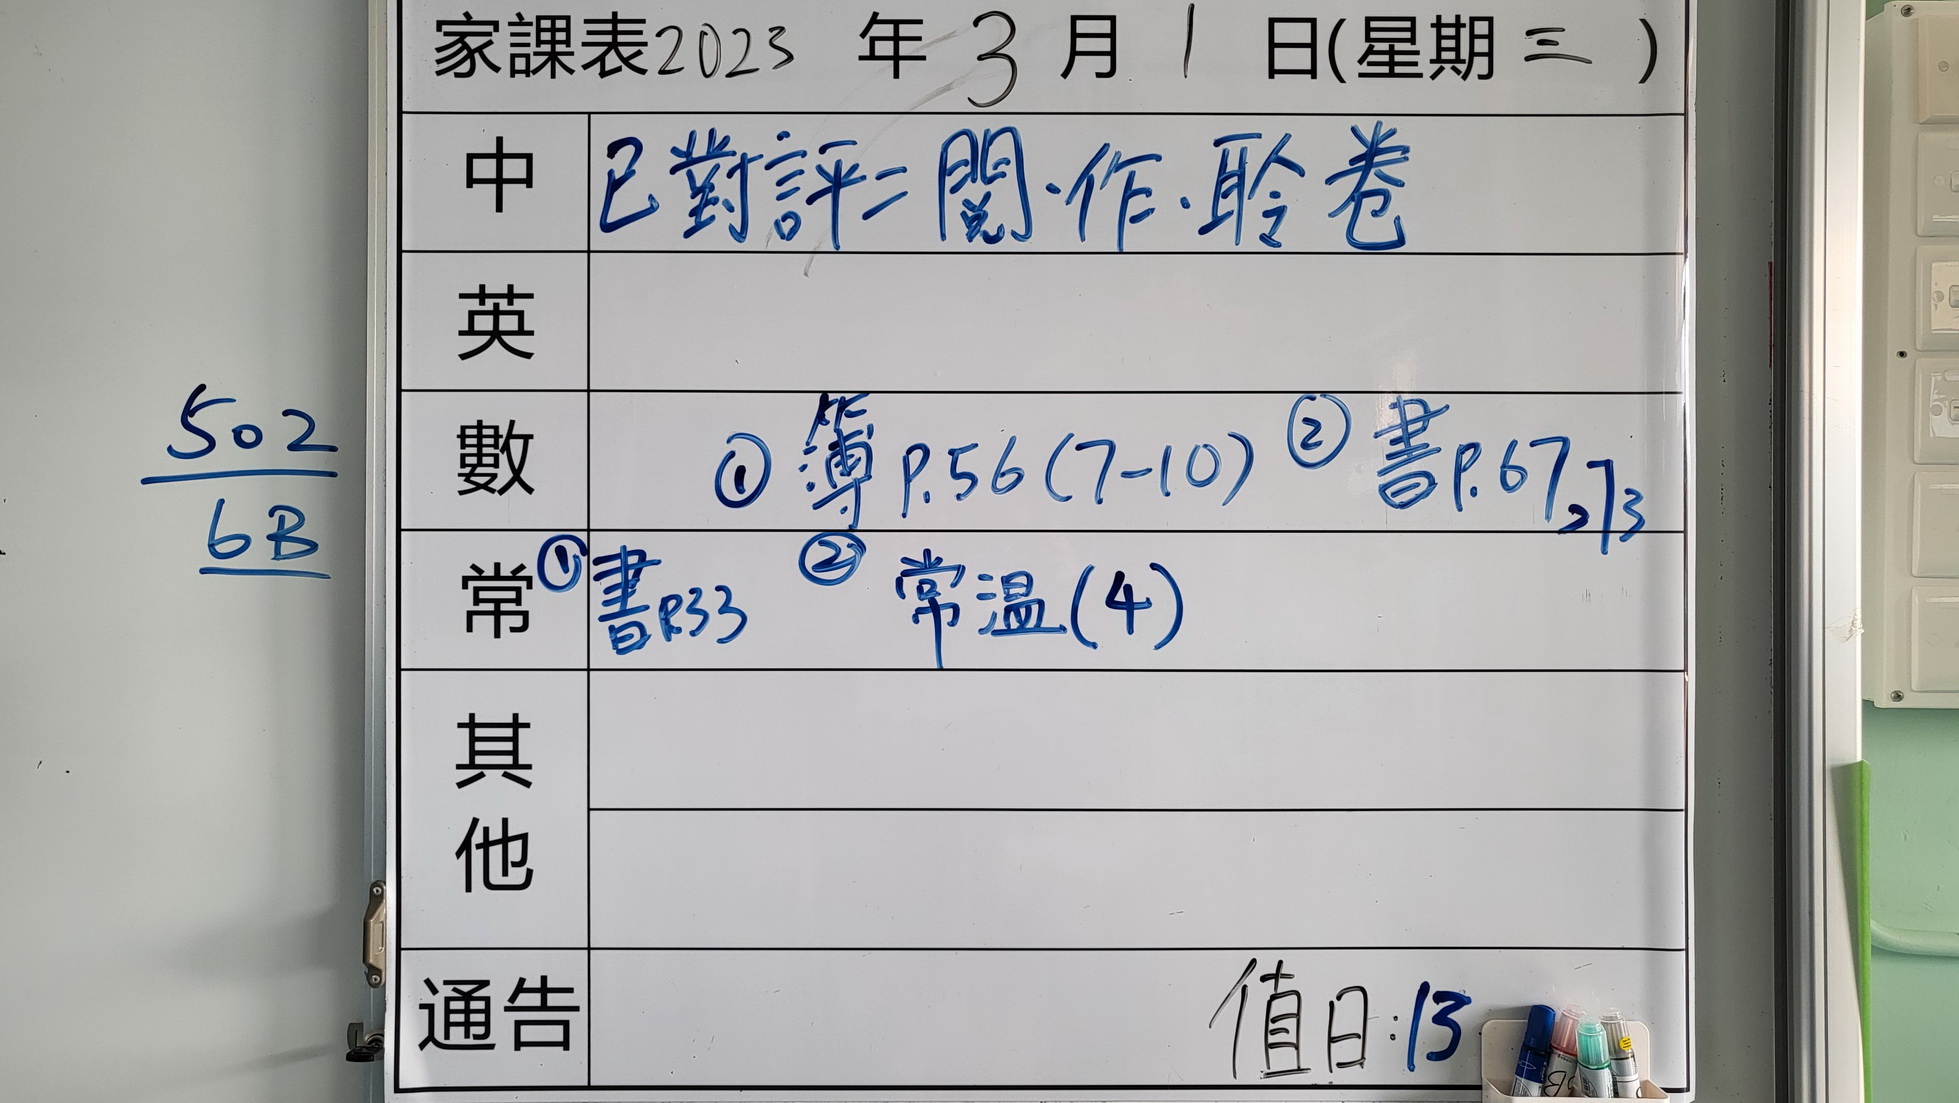 家課表2023 年 3 月 1 日(星期 三 )
中 已對評二閱.作.聆卷
英
數 ① 簿 P.56 (7-10) ② 書 P.67, 73
常 ① 書 P.33 ② 常温 (4)
其他
通告 值日:13
502
6B